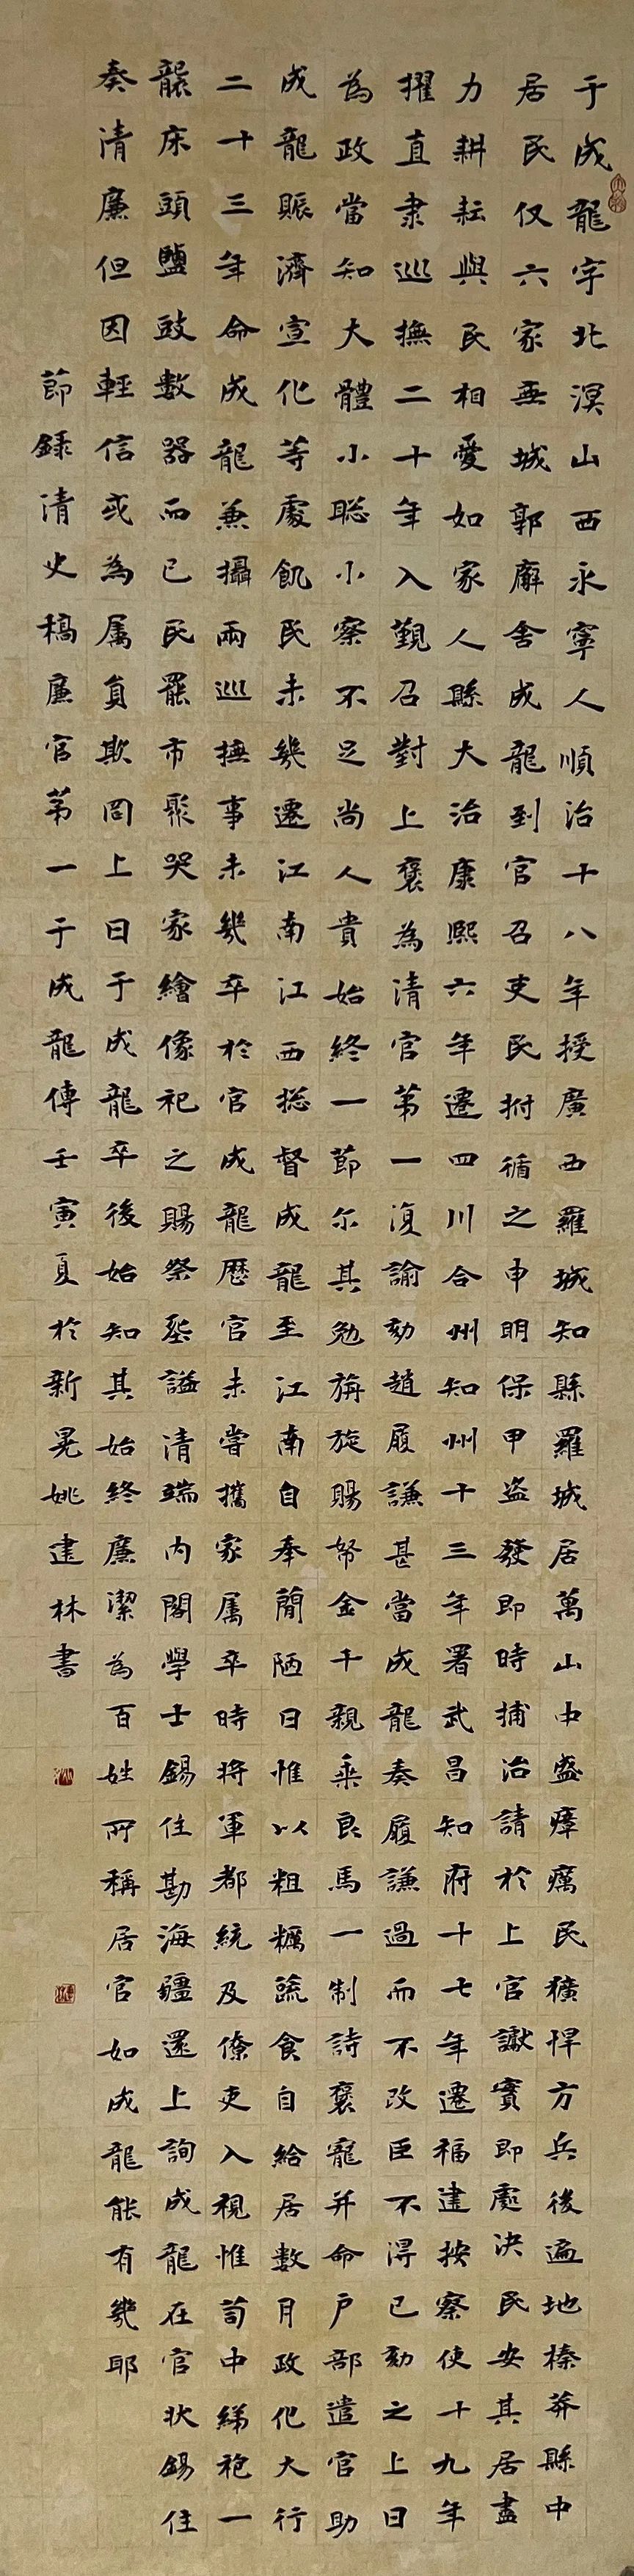 于成龍字北溟山西永寧人順治十八年授廣西羅城知縣羅城居萬山中盛瘴癘民獷悍方兵後遍地榛莽縣中
居民仅六家無城郭廨舍成龍到官召吏民拊循之申明保甲盗發即時捕治請於上官讞實即處決民安其居盡
力耕耘與民相愛如家人縣大治康熙六年遷四川合州知州十三年署武昌知府十七年遷福建按察使十九年
擢直隶巡撫二十年入覲召對上褒為清官第一復諭劾趙履謙甚當成龍奏履謙過而不改臣不得已劾之上曰
為政當知大體小聪小察不足尚人貴始終一節尔其勉旃旋賜帑金千親乘良馬一制詩褒寵并命户部遣官助
成龍賑濟宣化等處飢民未幾遷江南江西捴督成龍至江南自奉簡陋日惟以粗糲蔬食自給居數月政化大行
二十三年命成龍兼攝兩巡撫事未幾卒於官成龍歷官未嘗攜家属卒時将軍都統及僚吏入視惟笥中綈袍一
襲床頭鹽豉數器而已民罷市聚哭家繪像祀之賜祭葬謚清端内閣學士錫住勘海疆還上詢成龍在官狀錫住
奏清廉但因輕信或為属員欺罔上曰于成龍卒後始知其始終廉潔為百姓所稱居官如成龍能有幾耶
節録清史稿廉官第一于成龍傳壬寅夏於新晃姚建林書